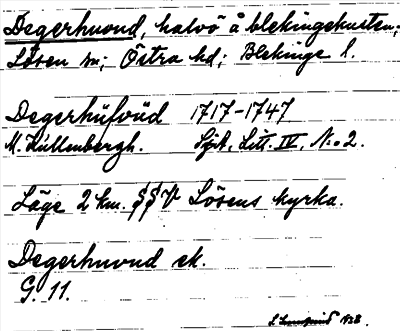 Degerhuvud, halvö å blekingekusten;
Lösen sn; Östra hd; Blekinge l.
Degerhüfvüd 1717-1747
M. Küllenbergh. Sjök. Litt. IV, No 2.
Läge 2 km. SSV Lösens kyrka.
Degerhuvud ek.
G. 11.